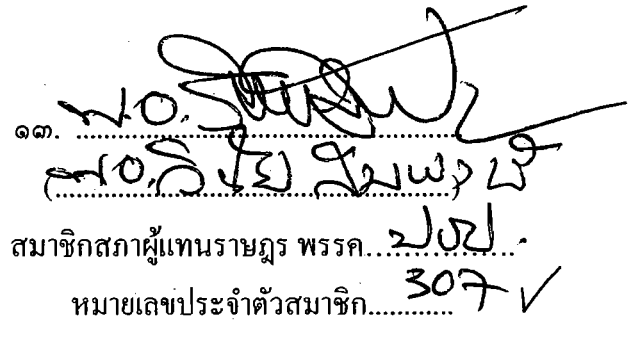 ๑๓. พ.อ.
(พ.อ.วินัย สมพงษ์)
สมาชิกสภาผู้แทนราษฎร พรรค ปชป.
หมายเลขประจำตัวสมาชิก 307 ✓